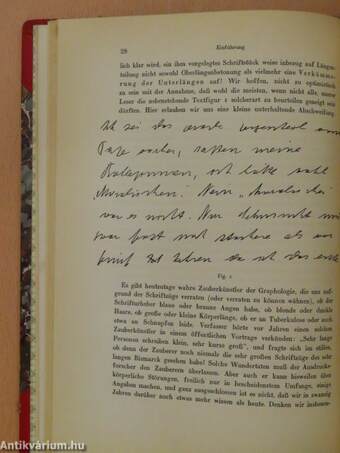 28 Einführung
lich klar wird, ein ihm vorgelegtes Schriftstück weise inbezug auf Längen-
teilung nicht sowohl Oberlängenbetonung als vielmehr eine Verküm-
merung der Unterlängen auf! Wir hoffen, nicht zu optimistisch
zu sein mit der Annahme, daß wohl die meisten, wenn nicht alle, unserer
Leser die nebenstehende Textfigur 1 solcherart zu beurteilen geneigt sein
dürften. Hier erlauben wir uns eine kleine unterhaltende Abschweifung.
Ich sei das
Tage vorher, meine
ich hätte wohl
„Moralischen". Nein, „Moralischer
war es nicht. Nur
war fast noch stärker als vor
fünf Jahren da ich das erste
Fig. 1
Es gibt heutzutage wahre Zauberkünstler der Graphologie, die uns auf-
grund der Schriftzüge verraten (oder verraten zu können wähnen), ob der
Schrifturheber blaue oder braune Augen habe, ob blonde oder dunkle
Haare, ob große oder kleine Körperlänge, ob er an Tuberkulose oder nicht
etwa an Schnupfen leide. Verfasser hörte vor Jahren einen solchen
Zauberkünstler in einem öffentlichen Vortrage verkünden: „Sehr lange
Personen schreiben klein, sehr kurze groß", und fragte sich im stillen,
ob denn der Zauberer noch niemals die sehr großen Schriftzüge des sehr
langen Bismarck gesehen habe! Solche Wundertaten muß der Ausdrucks-
forscher den Zauberern überlassen. Aber auch er kann bisweilen über
körperliche Störungen, freilich nur in bescheidenstem Umfange, einiges
Angaben machen, und ganz ausgeschlossen ist es nicht, daß wir in zwanzig
Jahren darüber noch etwas mehr wissen als heute. Denken wir insbeson-
Antikvárium.hu